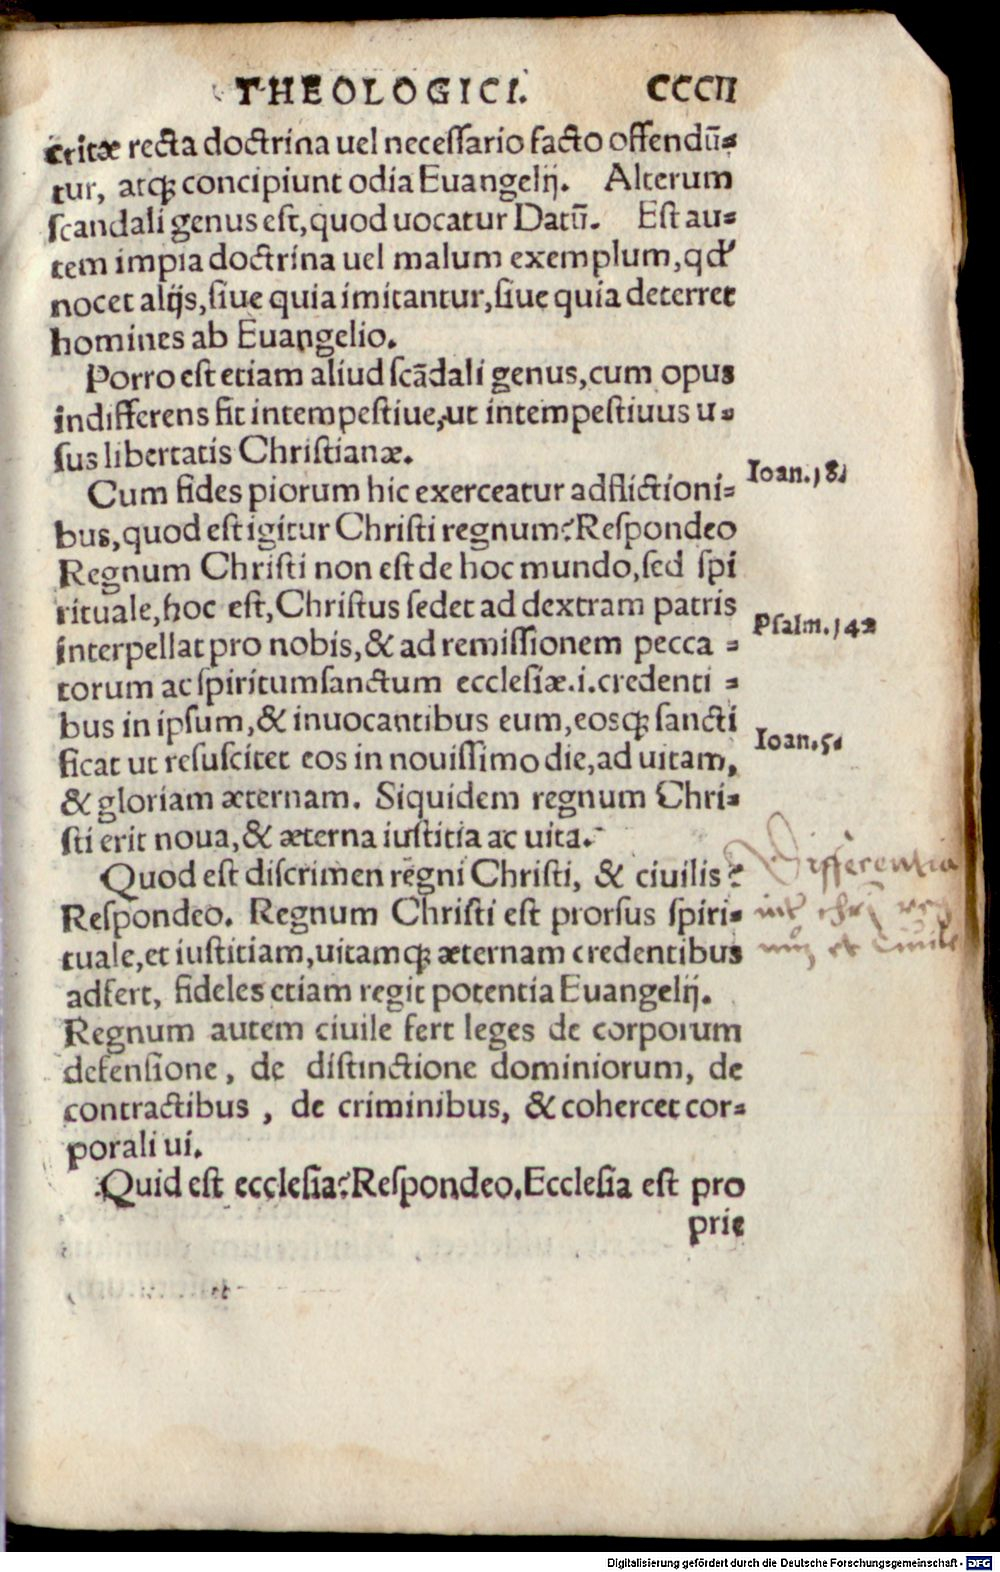 THEOLOGICI. CCCII
critæ recta doctrina uel necessario facto offendū-
tur, atqꝫ concipiunt odia Euangelij. Alterum
scandali genus est, quod uocatur Datū. Est au-
tem impia doctrina uel malum exemplum, qđ
nocet alijs, siue quia imitantur, siue quia deterret
homines ab Euangelio.
Porro est etiam aliud scādali genus, cum opus
indifferens fit intempestiue, ut intempestiuus u-
sus libertatis Christianæ.
Cum fides piorum hic exerceatur adflictioni-
Ioan. 18.
bus, quod est igitur Christi regnum? Respondeo
Regnum Christi non est de hoc mundo, sed spi
rituale, hoc est, Christus sedet ad dextram patris
Psalm. 142
interpellat pro nobis, & ad remissionem pecca -
torum ac spiritumsanctum ecclesiæ .i. credenti -
bus in ipsum, & inuocantibus eum, eosqꝫ sancti
Ioan. 5.
ficat ut resuscitet eos in nouissimo die, ad uitam,
& gloriam æternam. Siquidem regnum Chri-
sti erit noua, & æterna iustitia ac uita.
Quod est discrimen regni Christi, & ciuilis?
Differentia
Respondeo. Regnum Christi est prorsus spiri-
int chri reg
tuale, et iustitiam, uitamqꝫ æternam credentibus
et Ciuile
adfert, fideles etiam regit potentia Euangelij.
Regnum autem ciuile fert leges de corporum
defensione, de distinctione dominiorum, de
contractibus, de criminibus, & cohercet cor-
porali ui.
Quid est ecclesia? Respondeo. Ecclesia est pro
prie
Digitalisierung gefördert durch die Deutsche Forschungsgemeinschaft - DFG